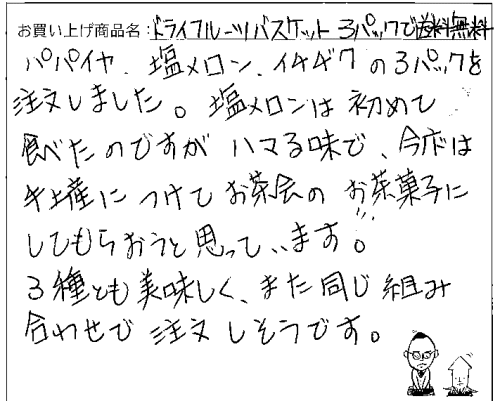 お買い上げ商品名：ドライフルーツバスケット 3パックで送料無料
パパイヤ、塩メロン、イチヂクの3パックを
注文しました。塩メロンは初めて
食べたのですがハマる味で、今度は
手土産につけてお茶会のお茶菓子に
してもらおうと思っています。
3種とも美味しく、また同じ組み
合わせで注文しそうです。